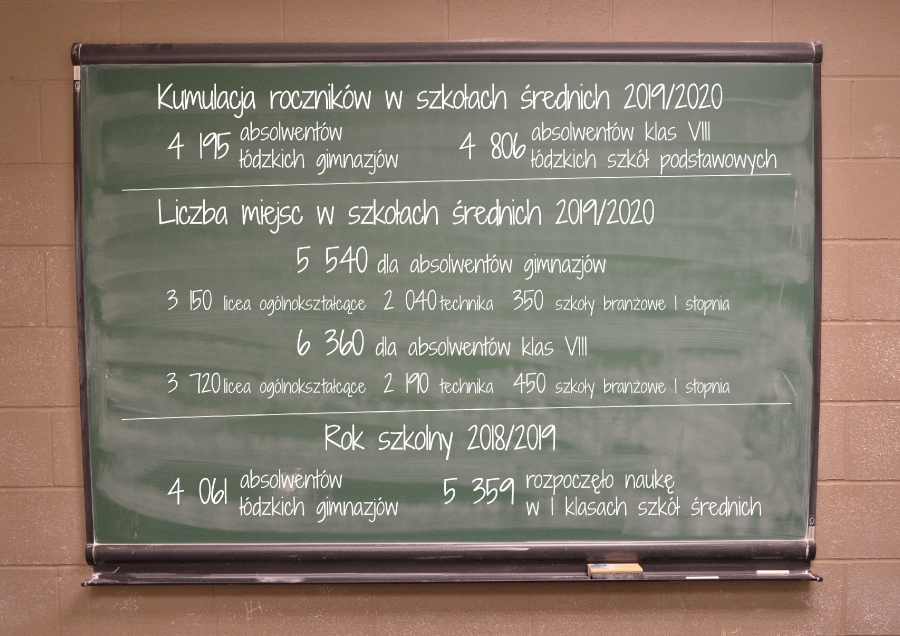 Kumulacja roczników w szkołach średnich 2019/2020
4 195 absolwentów łódzkich gimnazjów
4 806 absolwentów klas VIII łódzkich szkół podstawowych
Liczba miejsc w szkołach średnich 2019/2020
5 540 dla absolwentów gimnazjów
3 150 licea ogólnokształcące 2 040 technika 350 szkoły branżowe I stopnia
6 360 dla absolwentów klas VIII
3 720 licea ogólnokształcące 2 190 technika 450 szkoły branżowe I stopnia
Rok szkolny 2018/2019
4 061 absolwentów łódzkich gimnazjów
5 359 rozpoczęło naukę w I klasach szkół średnich